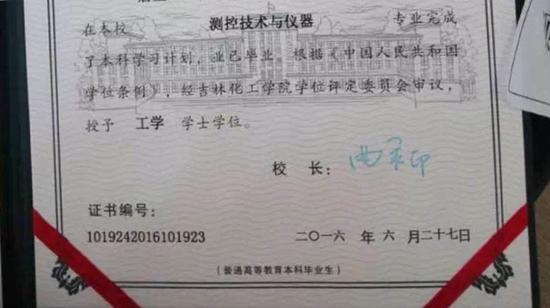 在本校 测控技术与仪器 专业完成
了本科学习计划，业已毕业。根据《中国人民共和国
学位条例》，经吉林化工学院学位评定委员会审议，
授予 工学 学士学位。
校 长：
证书编号：
1019242016101923
二〇一六 年 六 月二十七日
（普通高等教育本科毕业生）